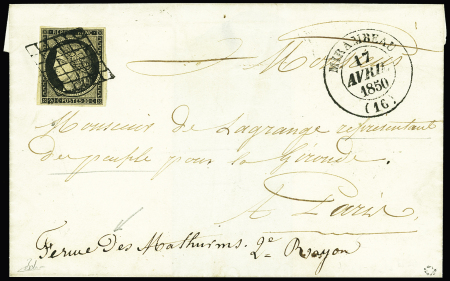 REPUB. FRANC.
20 c POSTES 20 c
MIRAMBEAU
17
AVRIL
1850
(16)
A Monsieur
Monsieur de Lagrange représentant
du peuple pour la Gironde.
A Paris
Ferme Des Mathurins. 2e Rayon